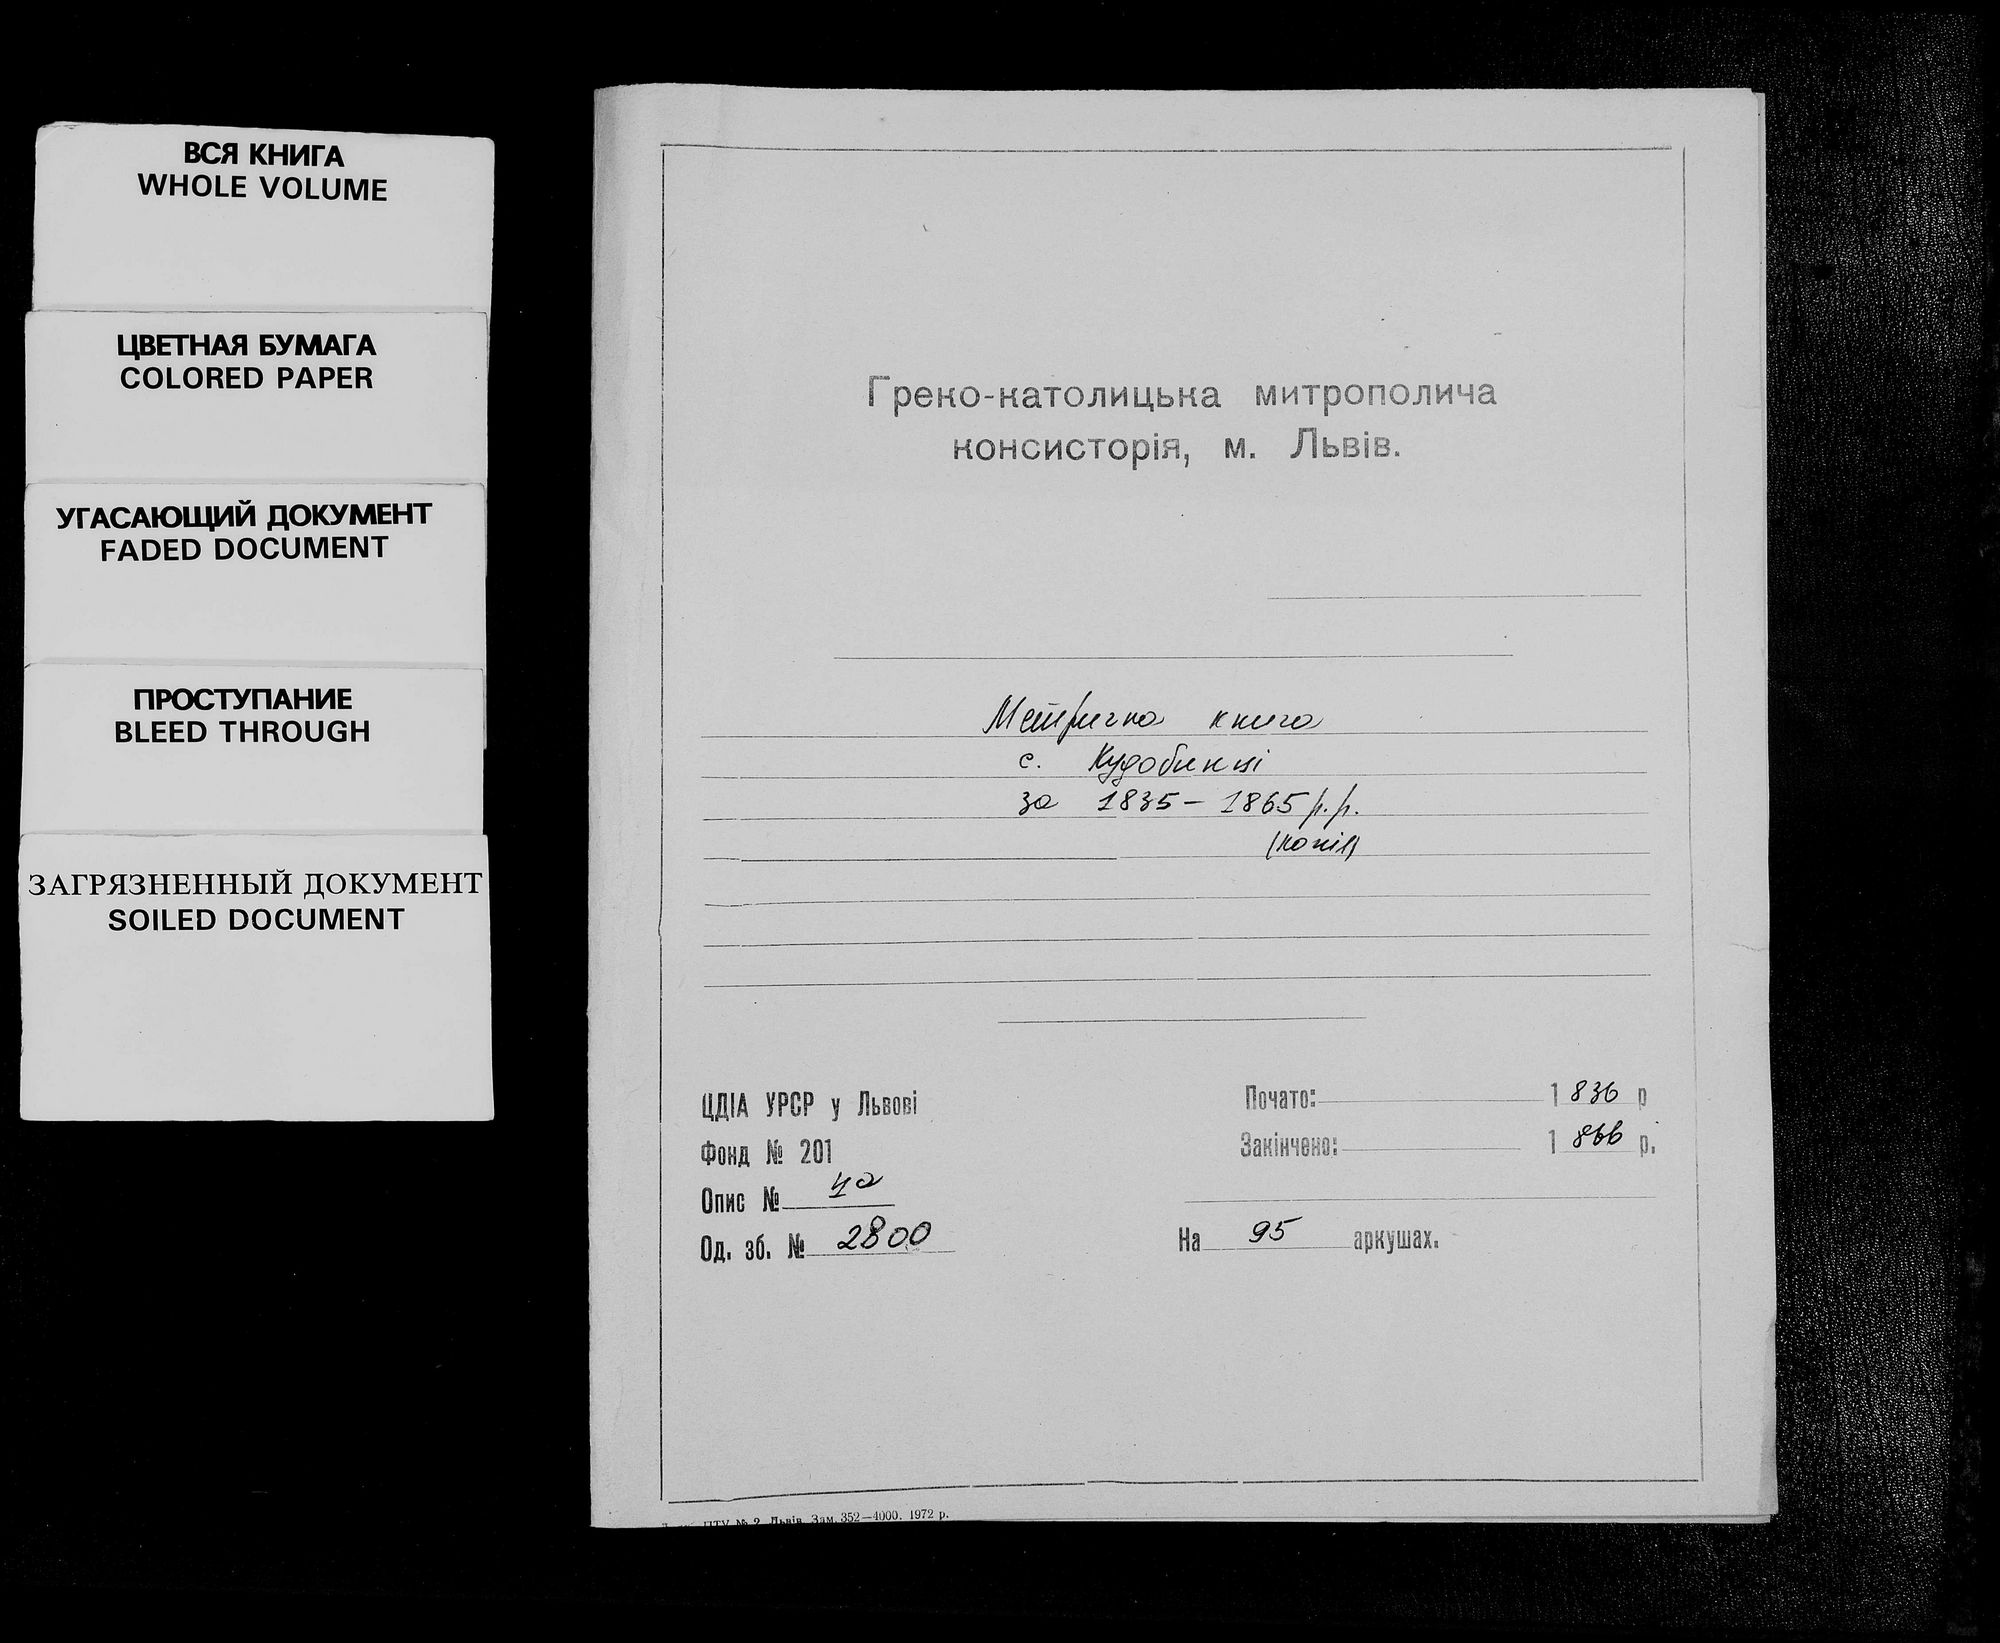 ВСЯ КНИГА
WHOLE VOLUME
ЦВЕТНАЯ БУМАГА
COLORED PAPER
УГАСАЮЩИЙ ДОКУМЕНТ
FADED DOCUMENT
ПРОСТУПАНИЕ
BLEED THROUGH
ЗАГРЯЗНЕННЫЙ ДОКУМЕНТ
SOILED DOCUMENT
Греко-католицька митрополича
консисторія, м. Львів.
Метрична книга
с. Кудобинці
за 1835-1865 р.р.
(копія)
ЦДІА УРСР у Львові
Фонд № 201
Опис № 4а
Од. зб. № 2800
Почато: 1836 р
Закінчено: 1866 р.
На 95 аркушах.
ПТУ № 2 Львів Зам. 352—4000. 1972 р.